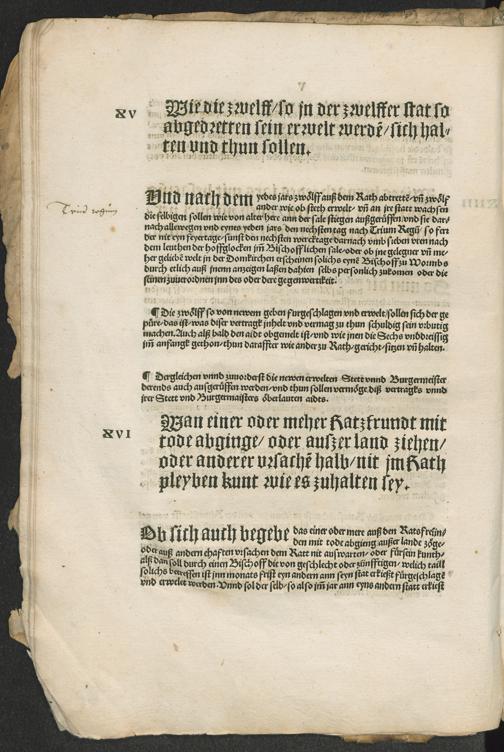 V
XV
Wie die zwelff/so jn der zwelffer stat so
abgedretten sein erwelt werdē/sich hal-
ten vnd thun sollen.
Vnd nach dem yedes jars zwölff auß dem Rath abtrettē· vn̄ zwölf
ander wie ob steth erwelt· vn̄ an jre statt wachsen
die selbigen sollen wie von alter here ann der sale stiegen außgerüffen/vnd sie dar-
nach allewegen vnd eynes yeden jars den nechsten tag nach Trium Regū· so fert
der nit eyn feyertage· sunst den nechsten wercktage darnach vmb sieben vren nach
dem leuthen der hoffglocken jm̄ Bischofflichen sale·oder ob jne gelegner vn̄ me-
her geliebē welt jn der Domkirchen erscheinen solichs eynē Bischoff zu Wormbs
durch etlich auß jnenn anzeigen laßen dahien selbs personlich zukomen oder die
seinen zuuerordnen jnn des oder dere gegenwertikeit.
Triū regum
¶ Die zwölff so von newem geben furgeschlagen vnd erwelt/sollen sich der ge
pure·das ist·was diser vertragk jnhelt vnd vermag zu thun schuldig sein vrbutig
machen. Auch alß bald den aide obgemelt ist/vnd wie jnen die Sechs vnddreissig
jm̄ anfangk gethon/thun daraffter wie ander zu Rath/gericht/sitzen vn̄ halten.
¶ Dergleichen vnnd zuuorderst die newen erwelten Stett vnnd Burgermeister
derends auch außgerüffen werden/vnd thun sollen vermöge diß vertragks vnnd
jrer Stett vnd Burgermaisters öberlauten aidts.
XVI
Wan einer oder meher Ratzfrundt mit
tode abginge/ oder auszer land ziehen/
oder anderer vrsachē halb/nit jm Rath
pleyben kunt wie es zuhalten sey.
Ob sich auch begebe das einer oder mere auß den Ratsfreün/
den mit tode abgieng außer landt züge/
oder auß andern chaften vrsachen dem Ratt nit außwarten/ oder fürsein kunth/
alß dan soll durch einen Bischoff die von geschlecht oder zünfftigen/ welich taill
solichs betreffen ist jnn monats frist eyn andern ann seyn stat erkießt fürgeschlagē
vnd erwelet werden. Vnnd sol der selb/so also jm̄ jar ann eyns andern statt erkießt